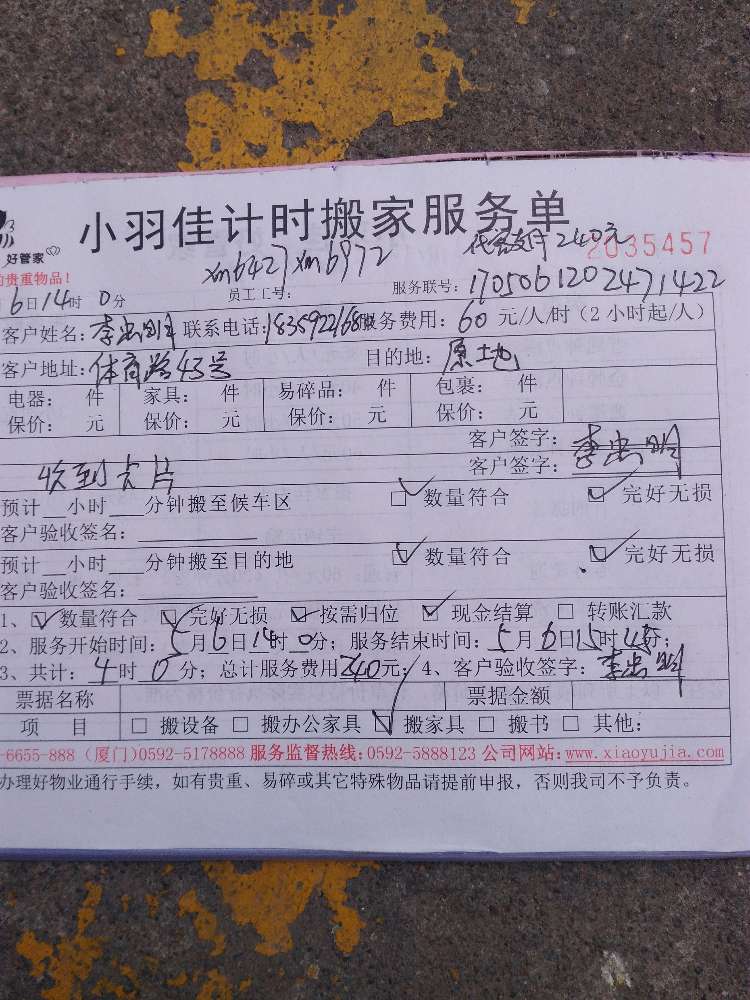 小羽佳计时搬家服务单
好管家
前贵重物品!
xm6427 xm6972 支付240元 2035457
6日14时0分 员工工号: 服务联号:1705061202471422
客户姓名:李忠明 联系电话:1835922168 服务费用:60元/人/时(2小时起/人)
客户地址:体育路43号 目的地:原土地
电器: 件 家具: 件 易碎品: 件 包裹: 件
保价: 元 保价: 元 保价: 元 保价: 元
客户签字:李忠明
收到卡片 客户签字:
预计 小时 分钟搬至候车区 数量符合 完好无损
客户验收签名:
预计 小时 分钟搬至目的地 数量符合 完好无损
客户验收签名:
1、数量符合 完好无损 按需归位 现金结算 转账汇款
2、服务开始时间:5月6日14时0分; 服务结束时间:5月6日15时45分;
3、共计:4时0分;总计服务费用240元; 4、客户验收签字:李忠明
票据名称 票据金额
项目 搬设备 搬办公家具 搬家具 搬书 其他:
-6655-888 (厦门)0592-5178888 服务监督热线:0592-5888123 公司网站:www.xiaoyujia.com
办理好物业通行手续,如有贵重、易碎或其它特殊物品请提前申报,否则我司不予负责。